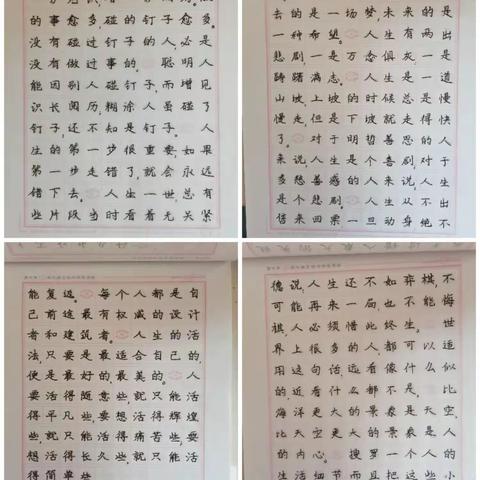 的事愈多，碰的钉子愈多。
没有碰过钉子的人，必是
没有做过事的。聪明人
能因别人碰钉子，而增见
识长阅历，糊涂人虽碰了
钉子，还不知是钉子。人
生的第一步很重要，如果
第一步走错了，就会永远
错下去。人生一世，总有
些片段当时看着无关紧
去的是一场梦，未来的是
一种希望。人生有两出
悲剧，一是万念俱灰，一是
踌躇满志。人生是一道
山坡，上坡的时候总是慢
慢走，但是下坡就走得快
了。对于明哲善思的人
来说，人生是个喜剧，对于
多愁善感的人来说，人生
是个悲剧。人生从不出
售来回票，一旦动身，绝不
能复返。每个人都是自
己前途最有权威的设计
者和建筑者。人生的活
法，只要是最适合自己的，
便是最好的，最美的。人
要活得随意些，就只能活
得平凡些，要想活得辉煌
些，就只能活得痛苦些，要
想活得长久些，就只能活
得简单些
德说，人生还不如弈棋，不
可能再来一局，也不能悔
棋，人必须惜此终生。世
界上很多的人，都可以适
用这句话，远看像什么似
的，近看什么都不是。比
海洋更大的景象是天空，
比天空更大的景象是人
的内心。搜罗一个人的
生活细节而且把这些小